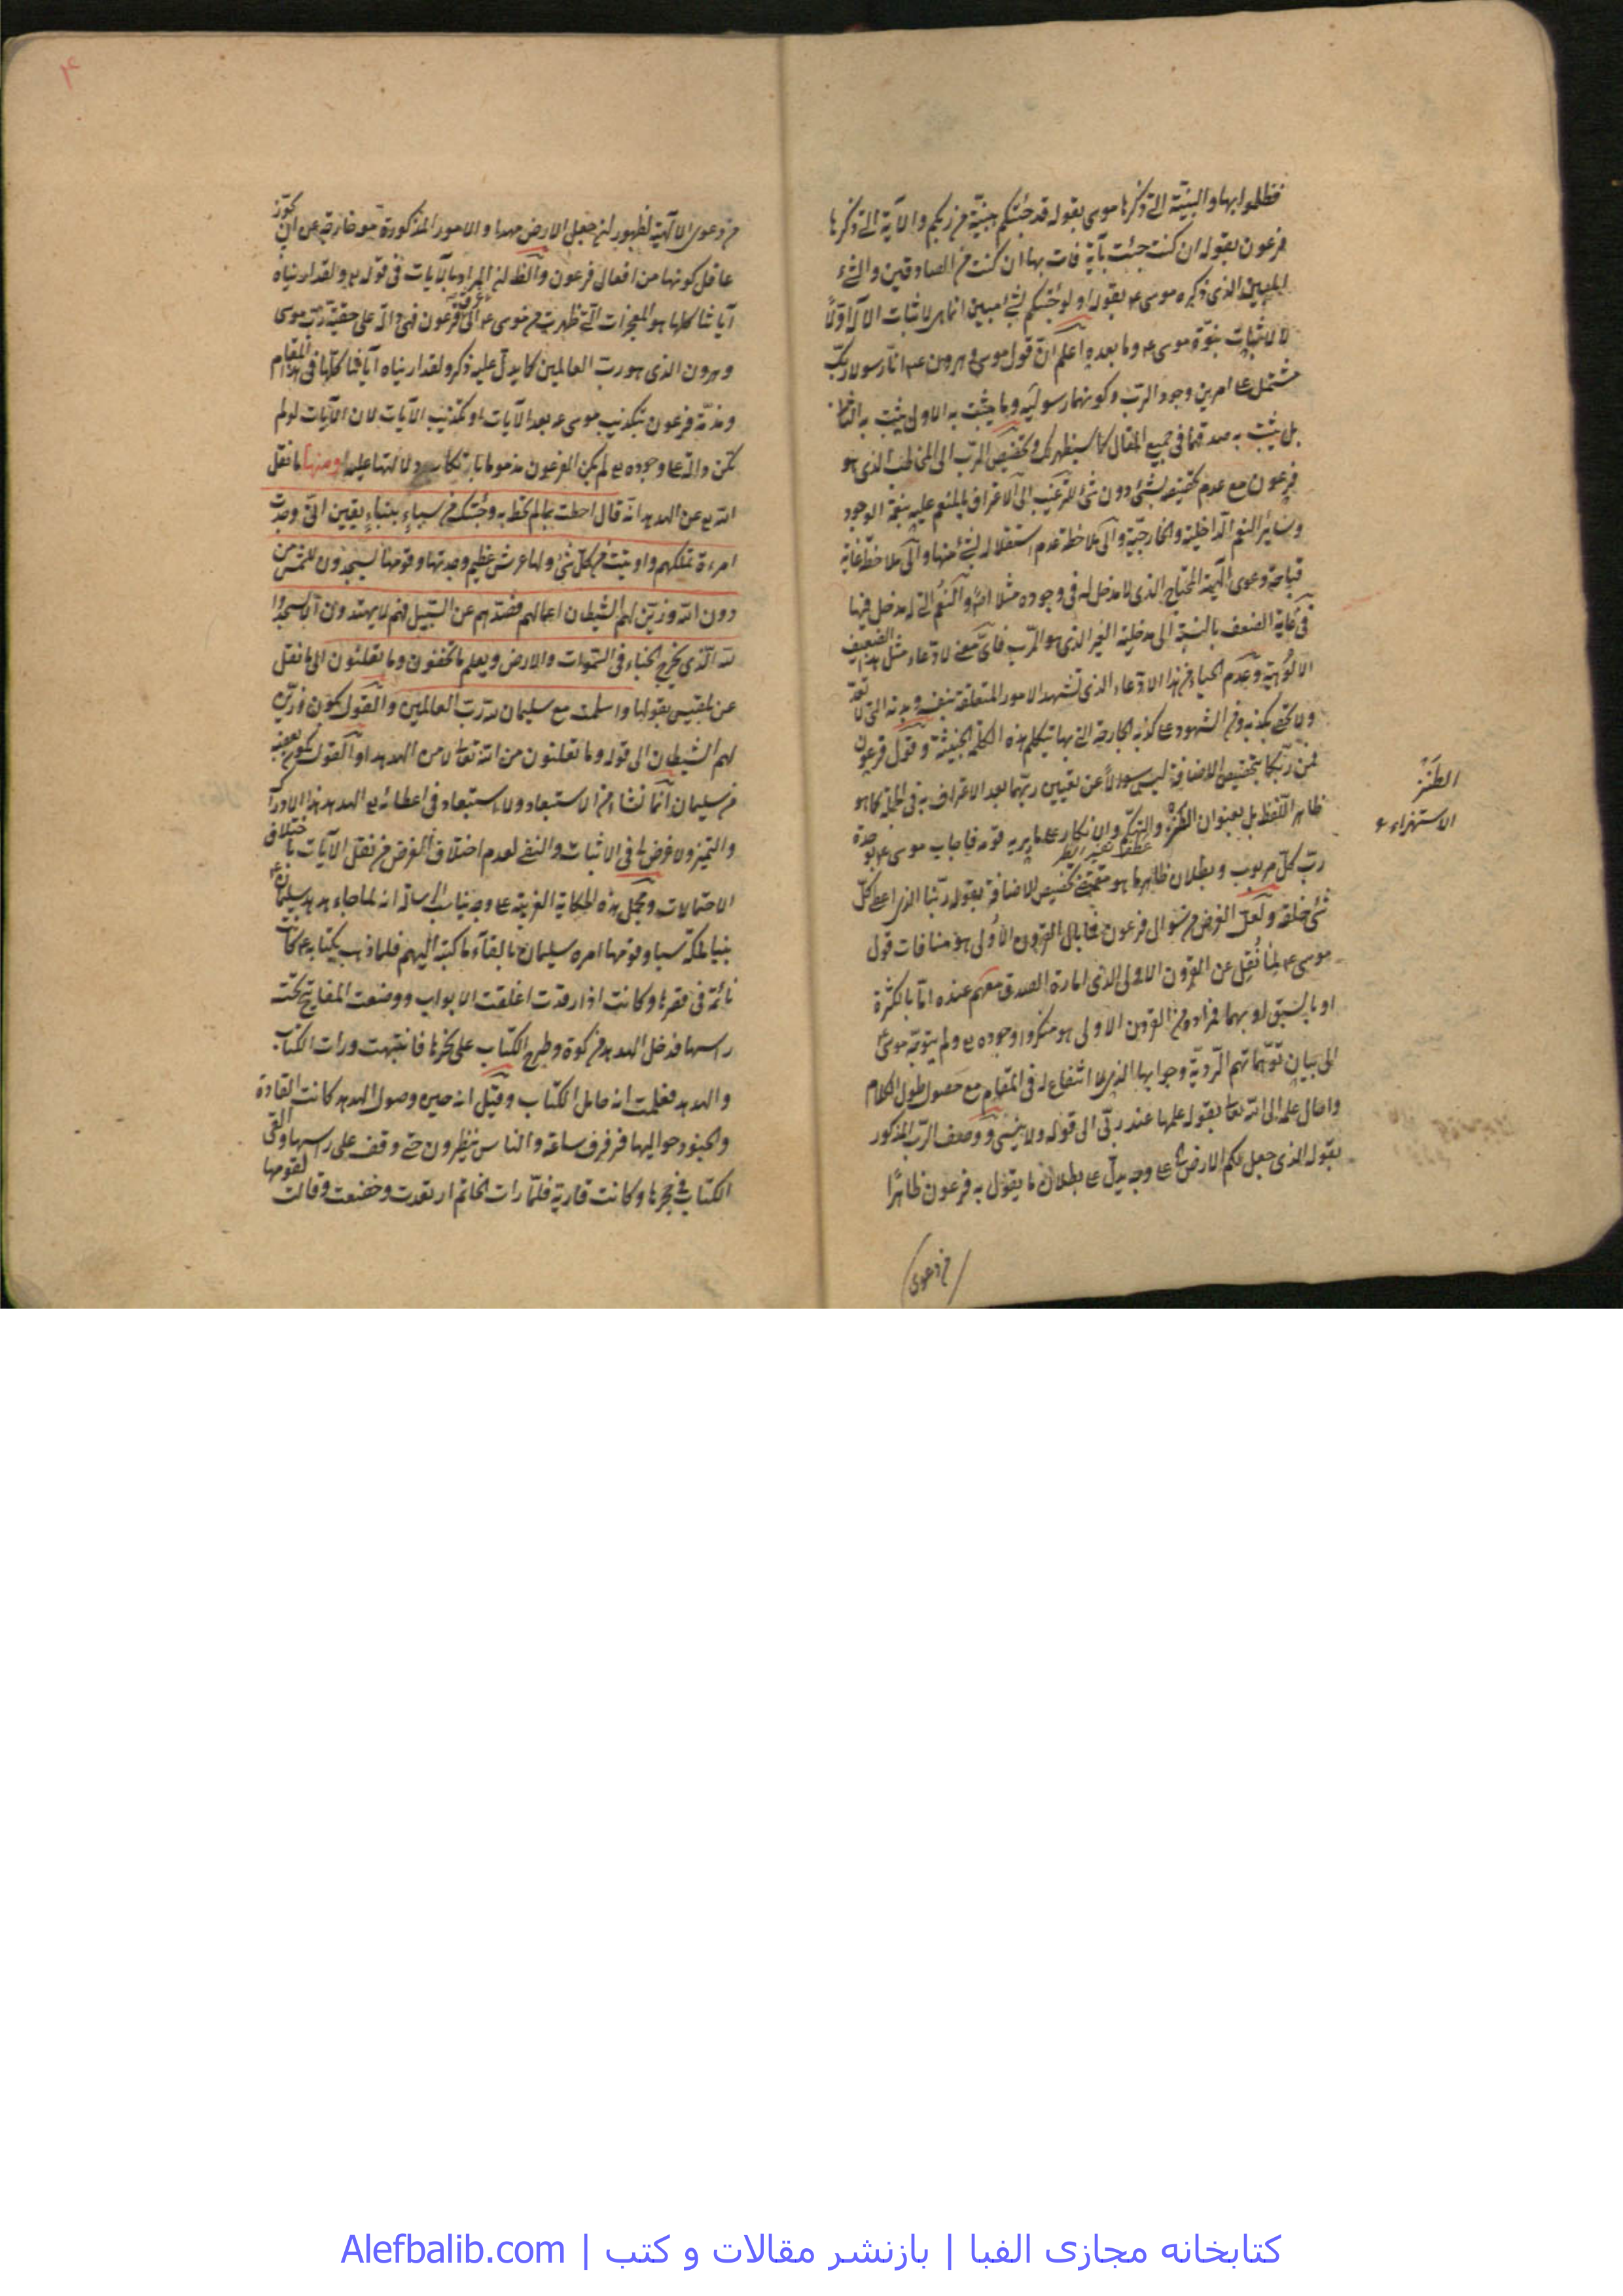 فظلموا بها والبينة التي ذكرها موسى بقوله قد جئتكم ببينة من ربكم والآية التي ذكرها
فرعون بقوله ان كنت جئت بآية فات بها ان كنت من الصادقين والشيء
المبين الذي ذكره موسى ع بقوله اولو جئتكم بشيء مبين انما هو لاثبات الاله اولاً
لا لاثبات نبوة موسى ع وما بعده اعلم ان قول موسى وهرون ع انا رسولا ربك
مشتمل على امرين وجود الرب وكونهما رسوليه وما يثبت به الاول يثبت به الثاني
بل يثبت به صدقهما في جميع المقال كما سيظهر لك وتخصيص الرب الى المخاطب الذي هو
فرعون مع عدم تخصيصه بشيء دون شيء للترغيب الى الاعتراف بالمنعم عليه بنعمة الوجود
وساير النعم الداخلية والخارجية والى ملاحظة عدم استقلاله لشيء منها والى ملاحظة غاية
قباحة دعوى الهية المحتاج الذي لا مدخل له في وجوده مثلا اصلا والنعم التي له مدخل فيها
في غاية الضعف بالنسبة الى مدخلية الغير الذي هو الرب فاي معنى لادعاء مثل هذا الضعيف
الالوهية وعدم الحياء من هذا الادعاء الذي تشهد الامور المتعلقة بنفسه وبدنه التي لا تعد
ولا تحصى بكذبه ومن الشهود على كذبه الجارحة التي بها يتكلم هذه الكلمة الخبيثة وقول فرعون
فمن ربكما بتخصيص الاضافة ليس سوالاً عن تعيين ربهما بعد الاعتراف به في الجملة كما هو
ظاهر اللفظ بل بعنوان الطنز والتهكم والانكار على ما يريه قومه فاجاب موسى ع بوحدة
عطف تفسير الطنز
رب كل مربوب وبطلان ظاهر ما هو مقتضى تخصيص الاضافة بقوله ربنا الذي اعطى كل
شيء خلقه ولعل الغرض من سؤال فرعون فما بال القرون الاولى هو منافات قول
موسى ع لما نقل عن القرون الاولى الذي امارة الصدق معهم عنده اما بالكثرة
او بالسبق او بهما فمراده من القرون الاولى هو منكروا وجوده تع ولم يتوجه موسى
الى بيان توهماتهم الردية وجوابها الذي لا انتفاع له في المقام مع حصول طول الكلام
واحال علمه الى الله تعالى بقوله علمها عند ربي الى قوله ولا ينسى ووصف الرب المذكور
بقوله الذي جعل لكم الارض على وجه يدل على بطلان ما يقول به فرعون ظاهراً
من دعوى
الطنز
الاستهزاء
۴
من دعوى الالهية لظهور ان جعل الارض مهدا والامور المذكورة معه خارجة عن ان يجوز
عاقل كونها من افعال فرعون والظاهر ان المراد بالآيات في قوله تع ولقد اريناه
آياتنا كلها هو المعجزات التي ظهرت من موسى ع الى فرعون فهي دالة على حقية رب موسى
وهرون الذي هو رب العالمين كما يدل عليه ذكر ولقد اريناه آياتنا كلها في هذا المقام
ومذمة فرعون بتكذيب موسى ع بعد الآيات او تكذيب الآيات لان الآيات لو لم
تكن دالة على وجوده تع لم يكن الفرعون مذموما بارتكاب ولا لتها عليه ومنها ما نقل
الله تع عن الهدهد انه قال احطت بما لم تحط به وجئتك من سباء بنباء يقين اني وجدت
امرءة تملكهم واوتيت من كل شيء ولها عرش عظيم وجدتها وقومها يسجدون للشمس من
دون الله وزين لهم الشيطان اعمالهم فصدهم عن السبيل فهم لا يهتدون الا يسجدوا
لله الذي يخرج الخباء في السموات والارض ويعلم ما تخفون وما تعلنون الى ما نقل
عن بلقيس بقولها واسلمت مع سليمان لله رب العالمين والقول بكون وزين
لهم الشيطان الى قوله وما تعلنون من الله تعالى لا من الهدهد او القول بكون بعضه
من سليمان انما نشاء من الاستبعاد ولا استبعاد في اعطائه تع الهدهد هذا الادراك
والتميز ولا غرض لي في الاثبات والنفي لعدم اختلاف الغرض من نقل الآيات باختلاف
الاحتمالات ومجمل هذه الحكاية الغريبة على ان لما جاء هدهد سليمان ع
بنباء ملكة سبا وقومها امره سليمان بالقاء ما كتبه اليهم فلما ذهب بكتابه ع كانت
نائمة في قصرها وكانت اذا رقدت اغلقت الابواب ووضعت المفاتيح تحت
راسها فدخل الهدهد من كوة وطرح الكتاب على نحرها فانتبهت ورات الكتاب
والهدهد فعلمت انه حامل الكتاب وقيل انه حين وصول الهدهد كانت القادة
والجنود حواليها فرفرف ساعة والناس ينظرون حتى وقف على راسها والقى
الكتاب في حجرها وكانت قارية فلما رات الخاتم ارتعدت وخضعت وقالت لقومها
كتابخانه مجازی الفبا | بازنشر مقالات و کتب | Alefbalib.com